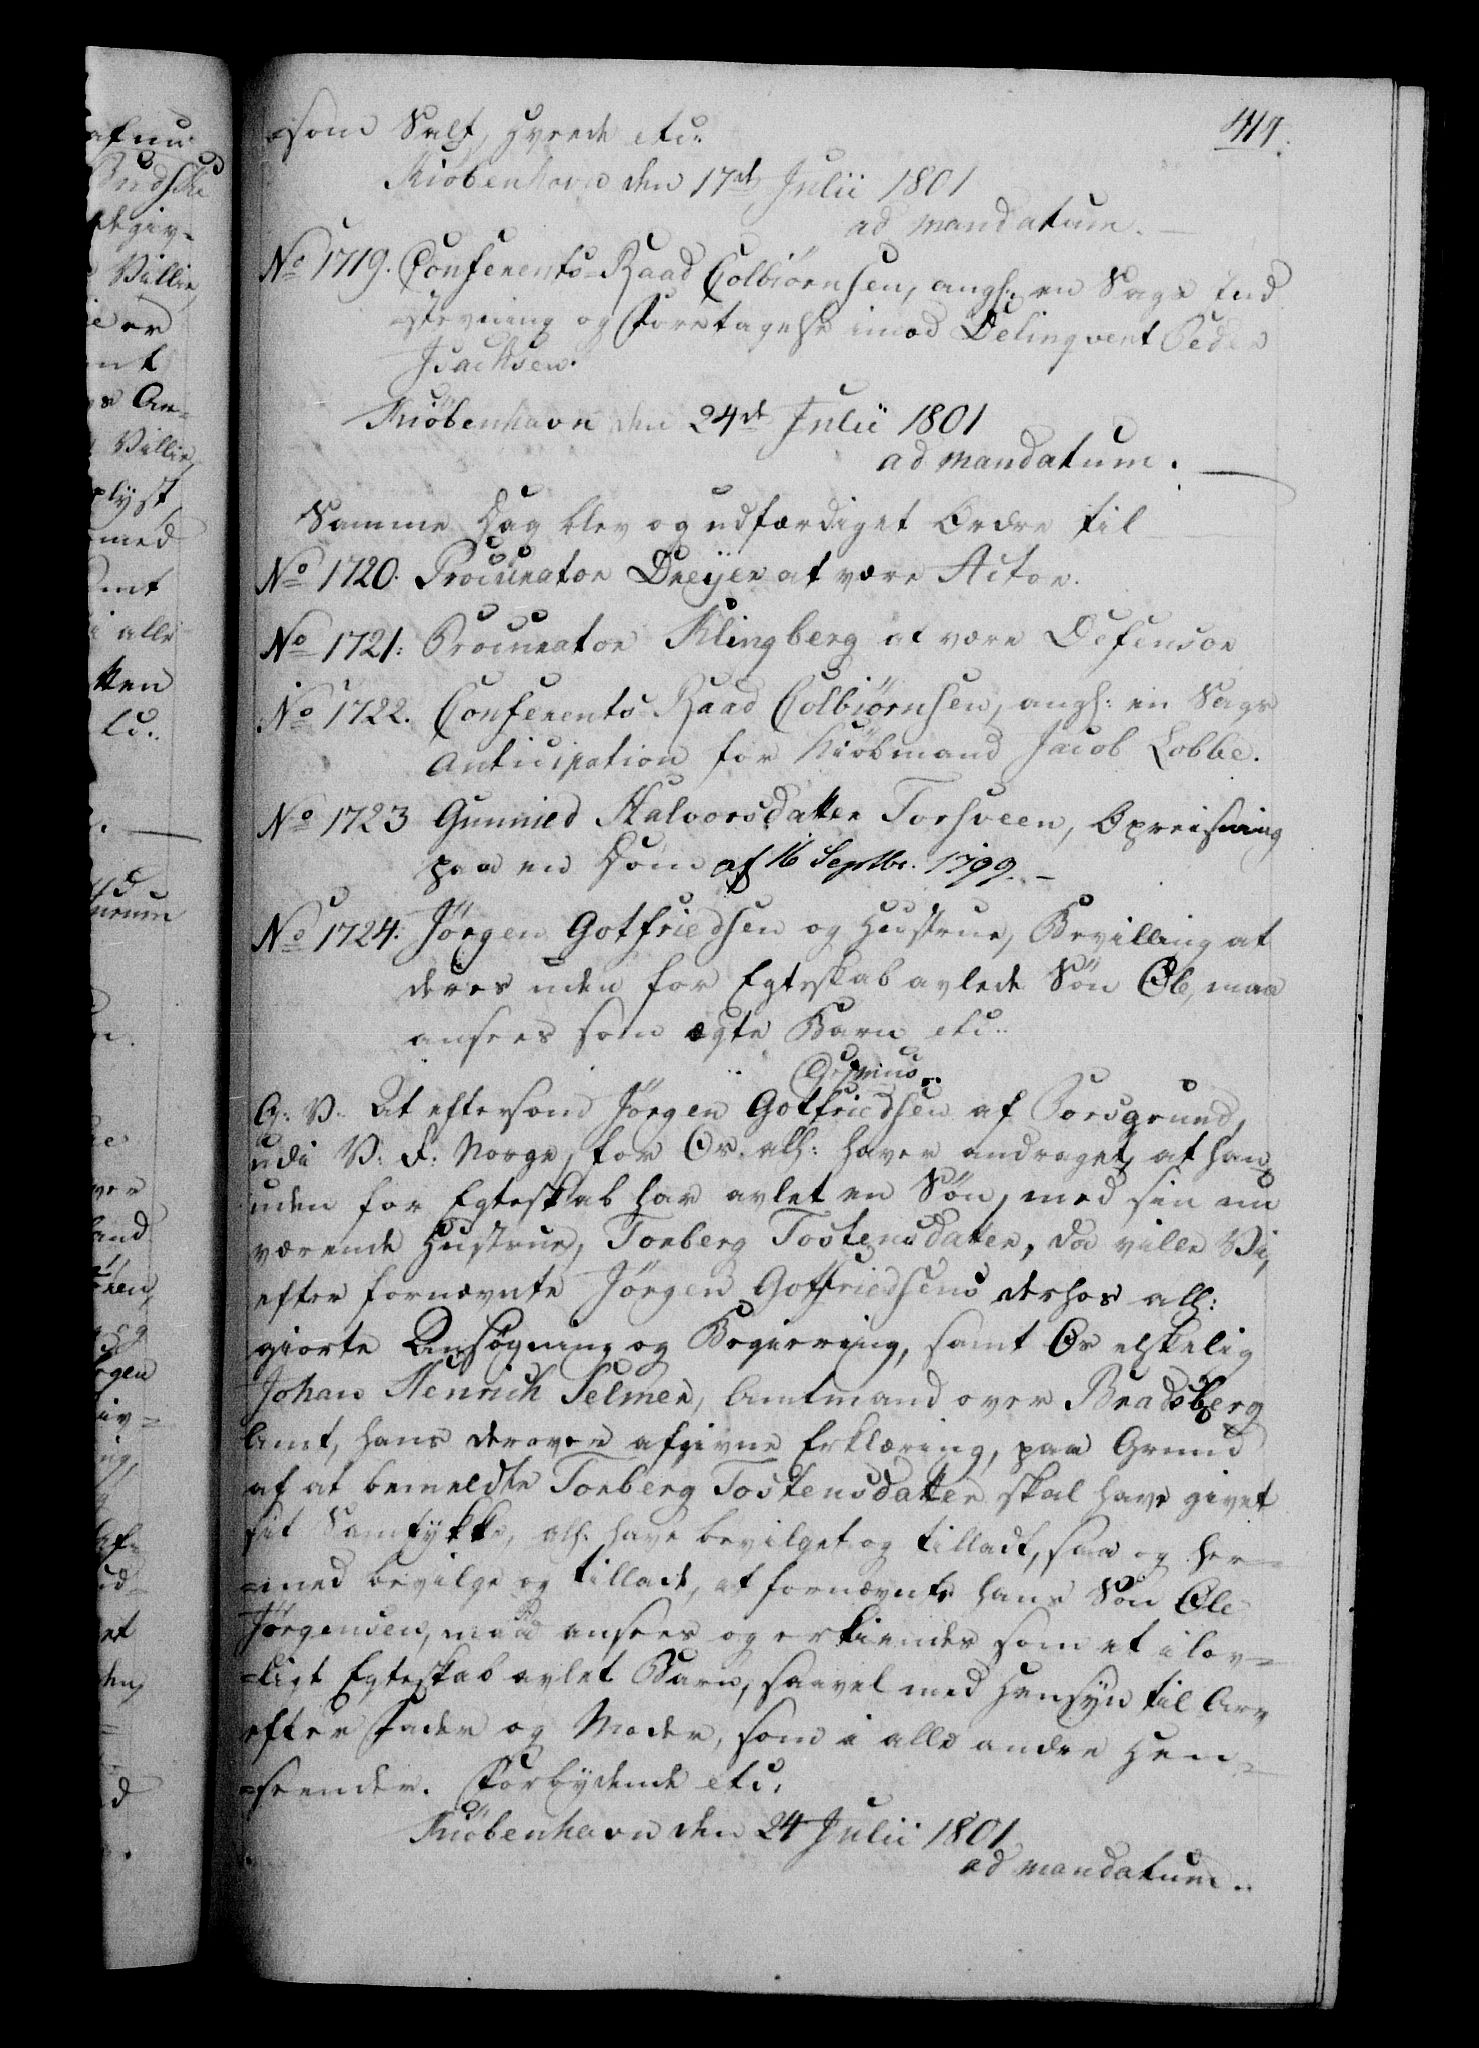 419.
som Salt, Hvede etc:
Kiøbenhavn den 17de Julii 1801
ad mandatum.
No 1719. Conferents-Raad Colbiørnsen, angh: en Sags Ind
stevning og Foretagelse imod Delinqvent Peder
Isachsen.
Kiøbenhavn den 24de Julii 1801
ad mandatum.
Samme Dag blev og udfærdiget Ordre til
No 1720. Procurator Dreijer at være Actor.
No 1721: Procurator Klingberg at være Defensor
No 1722. Conferents Raad Colbiørnsen, angh: en Sags
Anticipation for Kiøbmand Jacob Lobbe.
No 1723 Gunnied Halvorsdatter Torsveen, Opreisning
paa en Dom af 16 Septbr. 1799.
No 1724. Jørgen Gotfriedsen og Hustrue, Bevilling at
deres uden for Egteskab avlede Søn Ole, maa
ansees som ægte Barn etc:
G: V: At eftersom Jørgen Gotfriedsen af Porsgrund,
udi V: R: Norge, for Os allh: haver andraget, at han
uden for Egteskab har avlet en Søn, med sin nu
værende Hustrue, Torberg Tostensdatter, da ville Vi,
efter fornævnte Jørgen Gotfriedsens derhos allh:
giorte Ansøgning og Begiering, samt Os elskelig
Johan Henrich Selmer, Amtmand over Bradsberg
Amt, hans derover afgivne Erklæring, paa Grund
af at bemeldte Torberg Tostensdatter skal have givet
sit Samtykke, allh: have bevilget og tilladt, saa og her-
=med bevilge og tillade, at fornævnte hans Søn Ole
Jørgensen, maa ansees og erkiendes som et i lov-
=ligt Egteskab avlet Barn, saavel med Hensyn til Arv
efter Fader og Moder, som i alle andre Hen-
=seender. Forbydende etc:
Kiøbenhavn den 24 Julii 1801
ad mandatum..